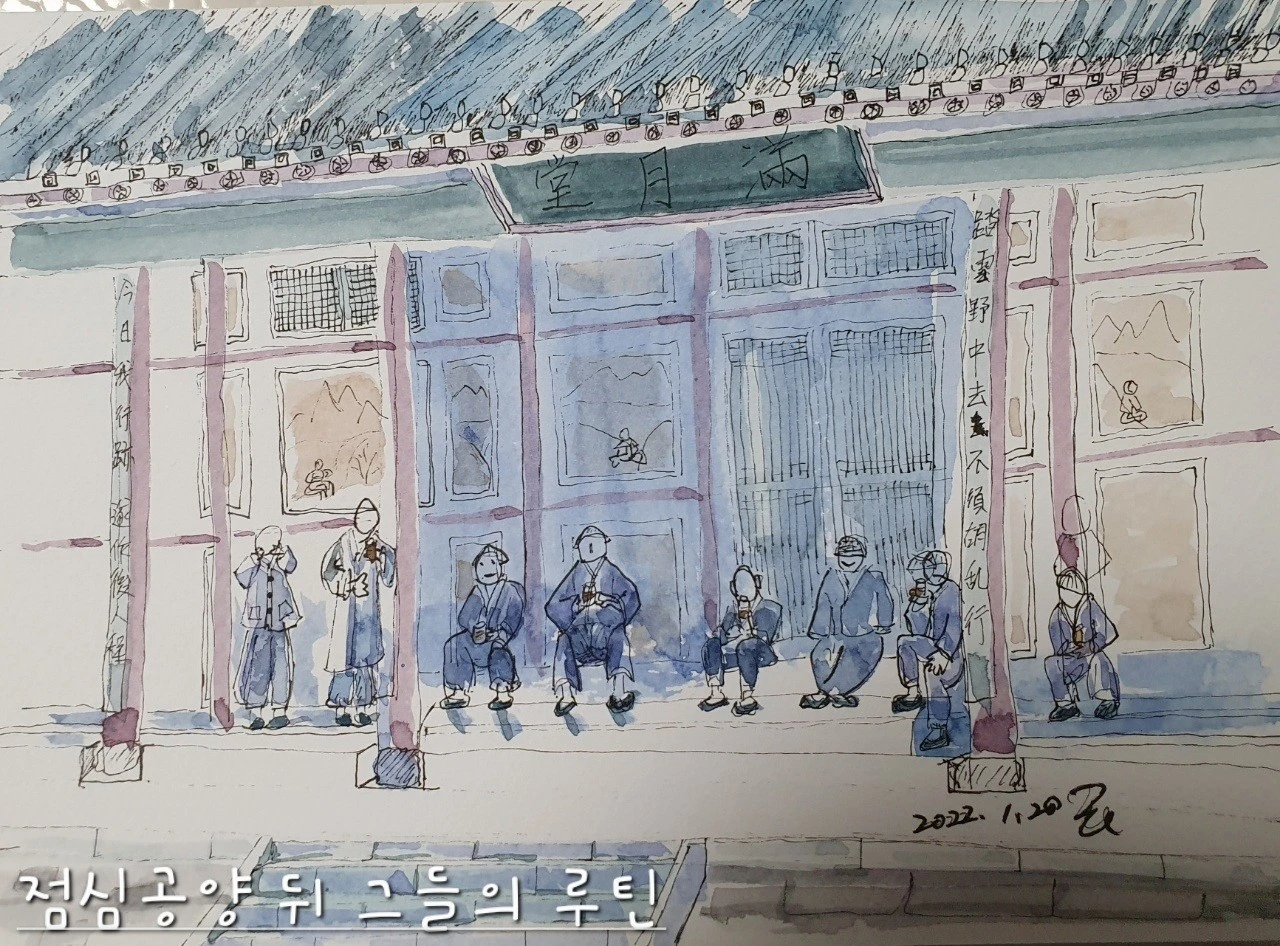 滿月堂
踏雪野中去 不須胡亂行
今日我行跡 遂作後人程
2022. 1. 20
점심공양 뒤 그들의 루틴